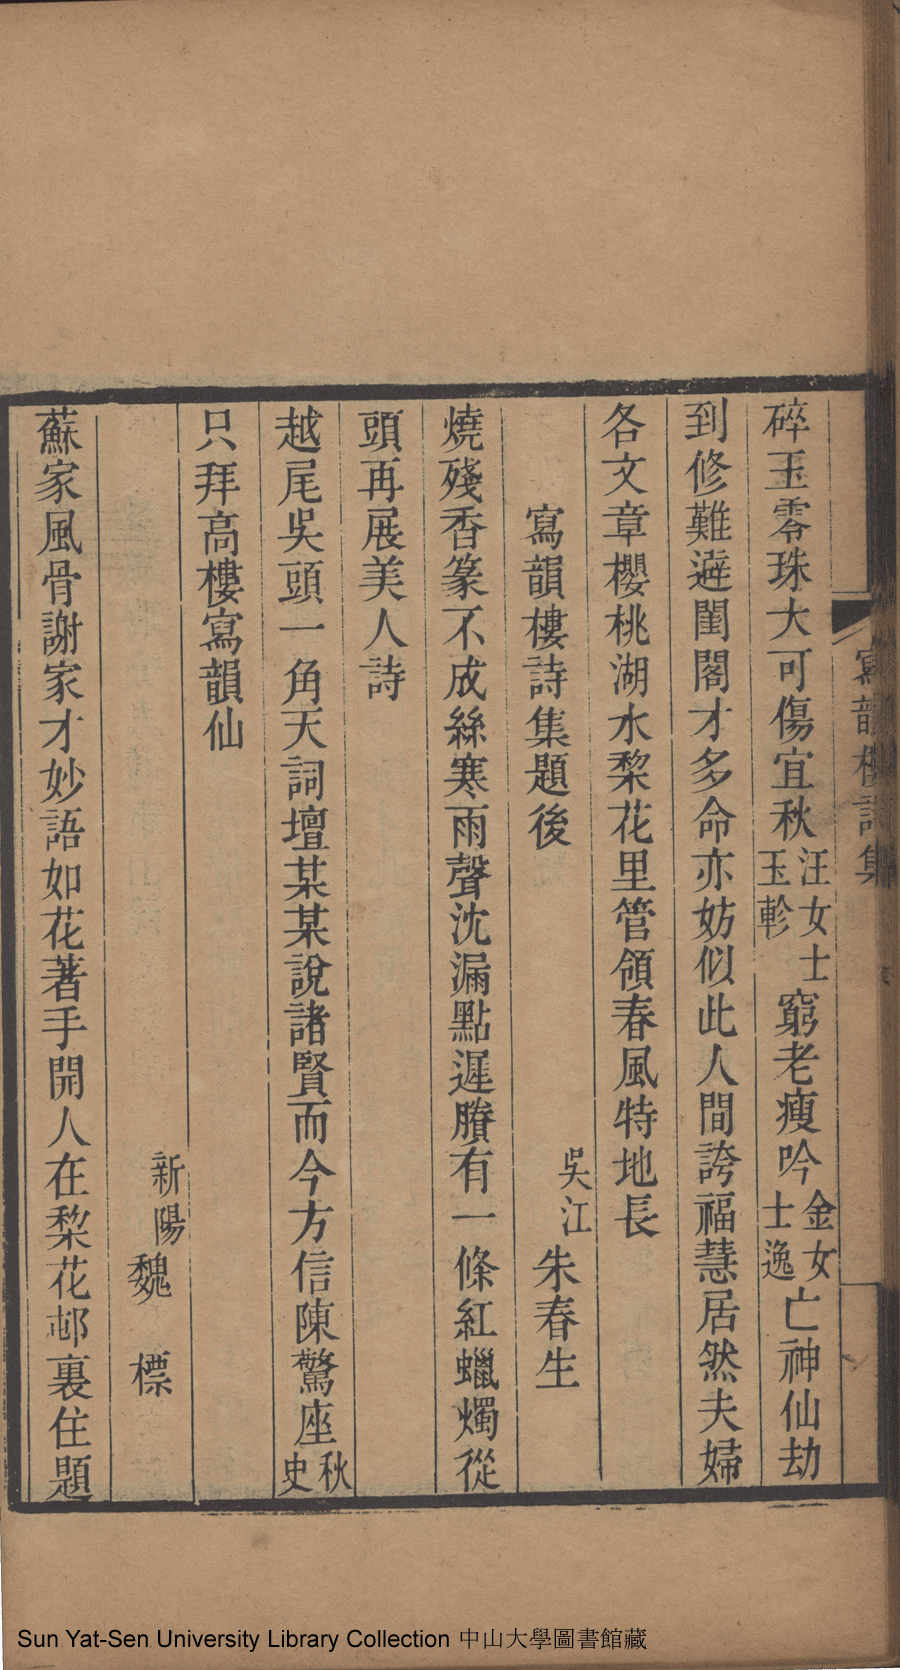 寫韻樓詩集
碎玉零珠大可傷宜秋汪女士玉軫窮老瘦吟金女士逸亡神仙劫
到修難遊閨閣才多命亦妨似此人間誇福慧居然夫婦
各文章櫻桃湖水棃花里管領春風特地長
寫韻樓詩集題後
吳江朱春生
燒殘香篆不成絲寒雨聲沈漏點遲賸有一條紅蠟燭從
頭再展美人詩
越尾吳頭一角天詞壇某某說諸賢而今方信陳驚座秋史
只拜高樓寫韻仙
新陽魏 標
蘇家風骨謝家才妙語如花著手開人在棃花邨裏住題
Sun Yat-Sen University Library Collection 中山大學圖書館藏